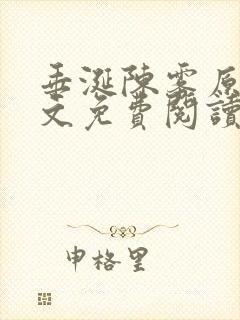 垂涎陳霧原
文免費閱讀
申格里